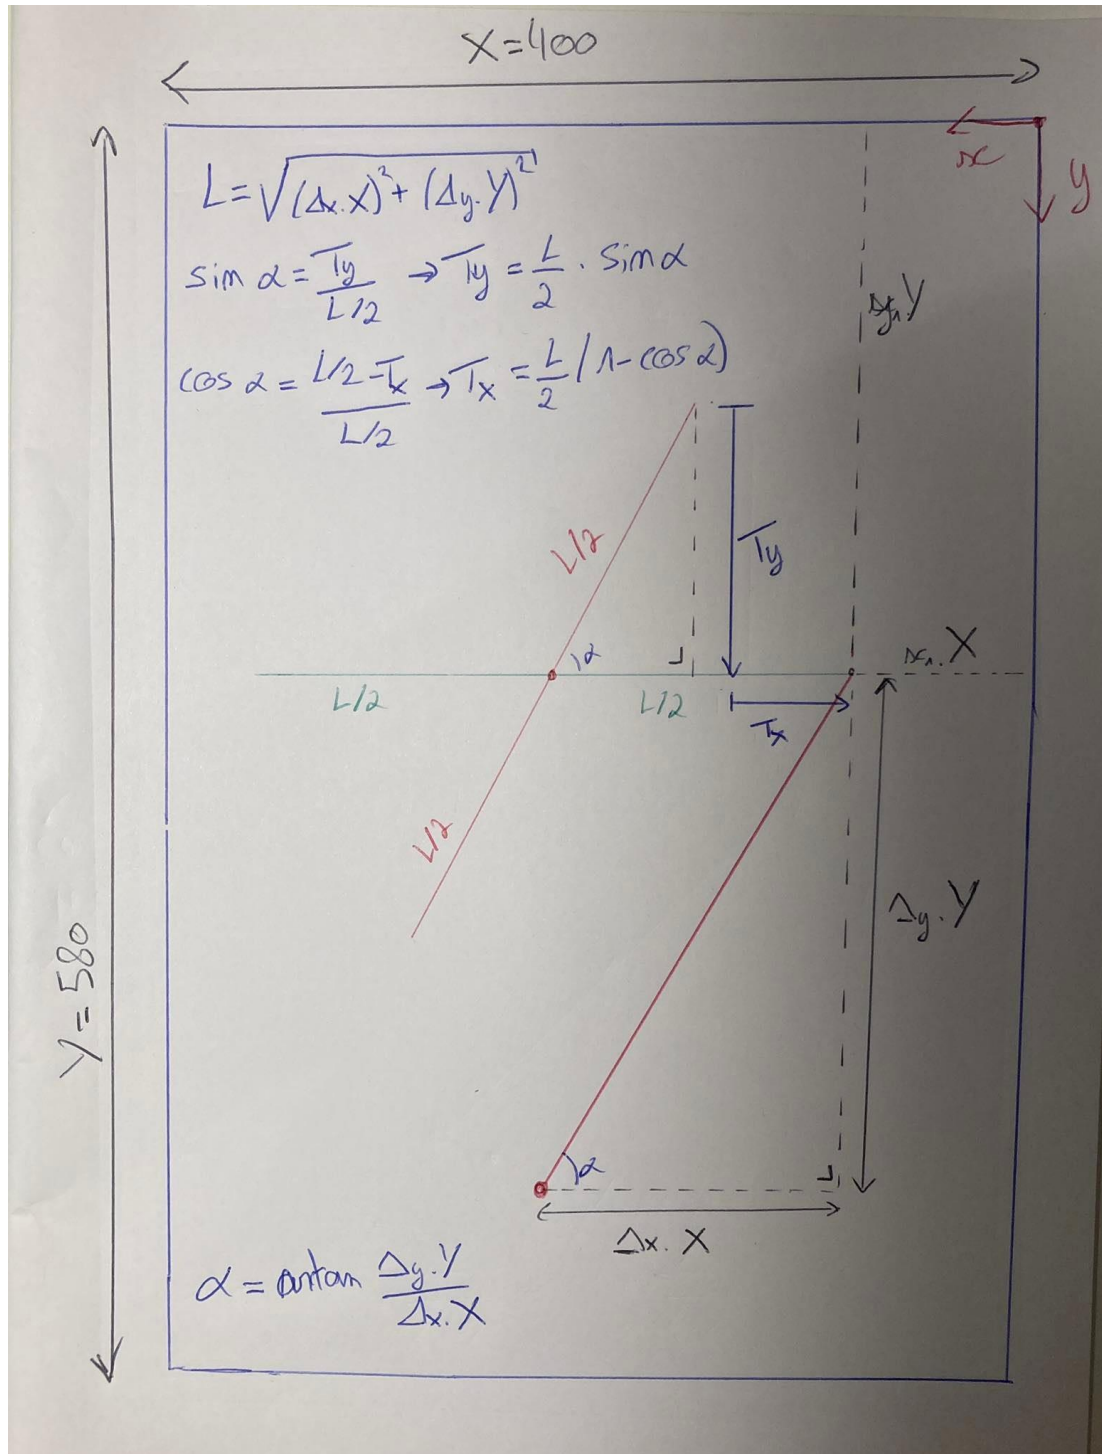 X=400
x
y
L=√(Δx.X)²+(Δy.Y)²
sin α=Ty/L/2 → Ty=L/2 . sin α
cos α = L/2-Tx/L/2 → Tx = L/2 (1-cos α)
y₁.Y
L/2
Ty
α
x₁.X
L/2
L/2
Tx
L/2
Δy.Y
Y=580
α
Δx.X
α = artan Δy.Y/Δx.X